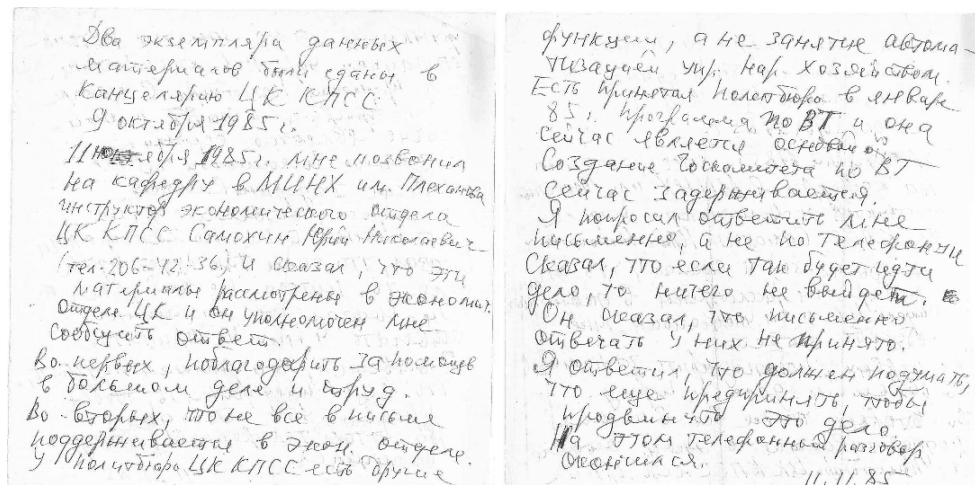 Два экземпляра данных
материалов были сданы в
канцелярию ЦК КПСС
9 октября 1985г.
11 ноября 1985г. мне позвонил
на кафедру в МИНХ им. Плеханова
инструктор экономического отдела
ЦК КПСС Самохин Юрий Николаевич
(тел. 206-42-36) и сказал, что эти
материалы рассмотрены в экономич.
отделе ЦК и он уполномочен мне
сообщить ответ.
Во-первых, поблагодарить за помощь
в большом деле и труд.
Во-вторых, что не всё в письме
поддерживается в экон. отделе.
У политбюро ЦК КПСС есть другие
функции, а не занятие автома-
тизацией упр. нар. хозяйством.
Есть принятая политбюро в январе
85г. программа по ВТ и она
сейчас является основой
Создание Госкомитета по ВТ
сейчас задерживается.
Я попросил ответить мне
письменно, а не по телефону и
сказал, что если так будет идти
дело, то ничего не выйдет.
Он сказал, что письменно
отвечать у них не принято.
Я ответил, что должен подумать,
что еще предпринять, чтобы
продвинуть это дело.
На этом телефонный разговор
окончился.
11.11.85